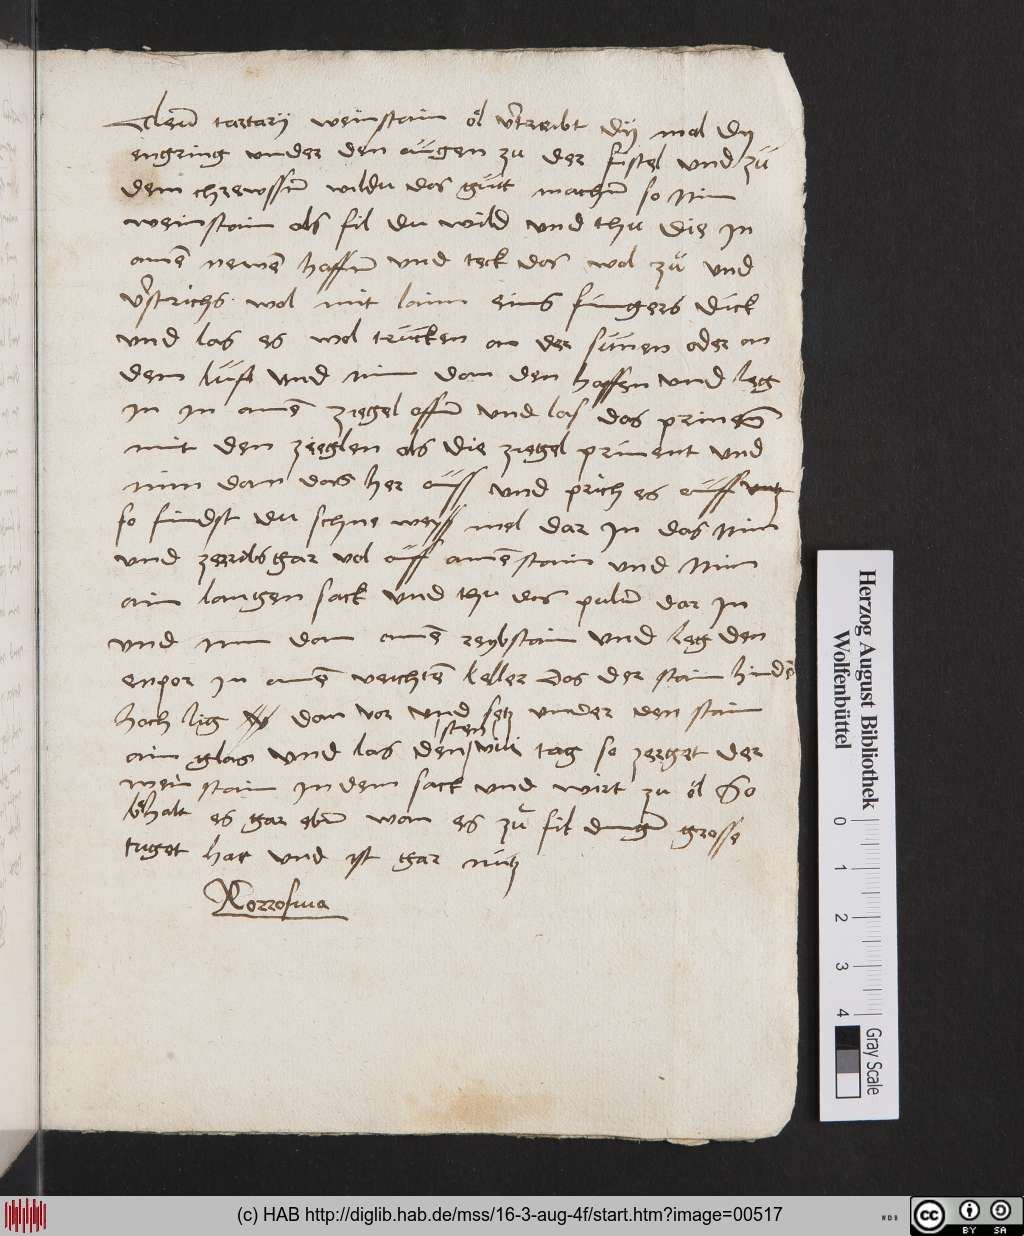 Oleum̄ tartarij weinstain öl v̄treibt dÿ mal dy
engring vnder den augen zu der fistel vnd zu
dem chrewssn̄ wildu das gutt machn̄ so Nim
weinstain als fil du wild vnd thu die in
ainē newē haffn̄ vnd teck das wol zu vnd
v̄strichs wol mit laim eins fingers dick
vnd las es wol trucken an der sunen oder an
dem luft vnd nim dan den haffen vnd leg
in in ainē ziegel offn̄ vnd las das prinen
mit den zieglen als die ziegel prinent vnd
nim dan das her auss vnd prich es auff
so findst du schne weyss mel dar in das Nim
vnd zerribs gar wol auff ainē stain vnd Nim
ain langen sack vnd thu das pulu̅ dar in
vnd nim dan ainē reybstain vnd leg den
enpor in ainē veichtē keller das der stain hindē
hoch lig dan vor vnd setz vnder den stain
ain glas vnd las den sten viii tag so zerget der
wein stain in dem sack vnd wirt zu öl So
behalt es gar ebn̄ wan es zu fil dingn̄ grosse
tuget hat vnd ist gar nutz
Korrosiua
Herzog August Bibliothek
Wolfenbüttel
0 1 2 3 4
Gray Scale
(c) HAB http://diglib.hab.de/mss/16-3-aug-4f/start.htm?image=00517
WDB
cc BY SA